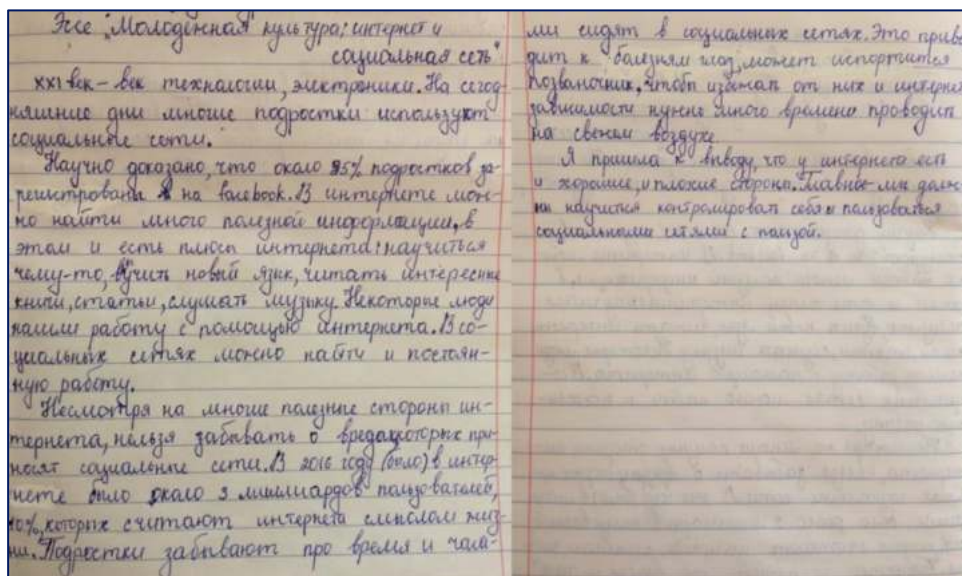 Эссе "Молодёжная культура: интернет и
социальная сеть"
XXI век – век технологии, электроники. На сегод-
няшние дни многие подростки используют
социальные сети.
Научно доказано, что около 95% подростков за-
регистрированы на facebook. В интернете мож-
но найти много полезной информации, в
этом и есть плюсы интернета: научиться
чему-то, изучить новый язык, читать интересные
книги, статьи, слушать музыку. Некоторые люди
нашли работу с помощью интернета. В со-
циальных сетях можно найти и постоян-
ную работу.
Несмотря на многие полезные стороны ин-
тернета, нельзя забывать о вредах, которых при-
носят социальные сети. В 2016 году (было) в интер-
нете было около 3 миллиардов пользователей,
10%, которых считают интернета смыслом жиз-
ни. Подростки забывают про время и часа-
ми сидят в социальных сетях. Это приво-
дит к болезням глаз, может испортится
позваночник, чтобы избежат от них и интернет
зависимости нужно много времени проводит
на свежем воздухе
Я пришла к виводу, что у интернета есть
и хорошие, и плохие стороны. Главные мы долж-
ны научится контролироват себя и пользоваться
социальными сетями с пользой.